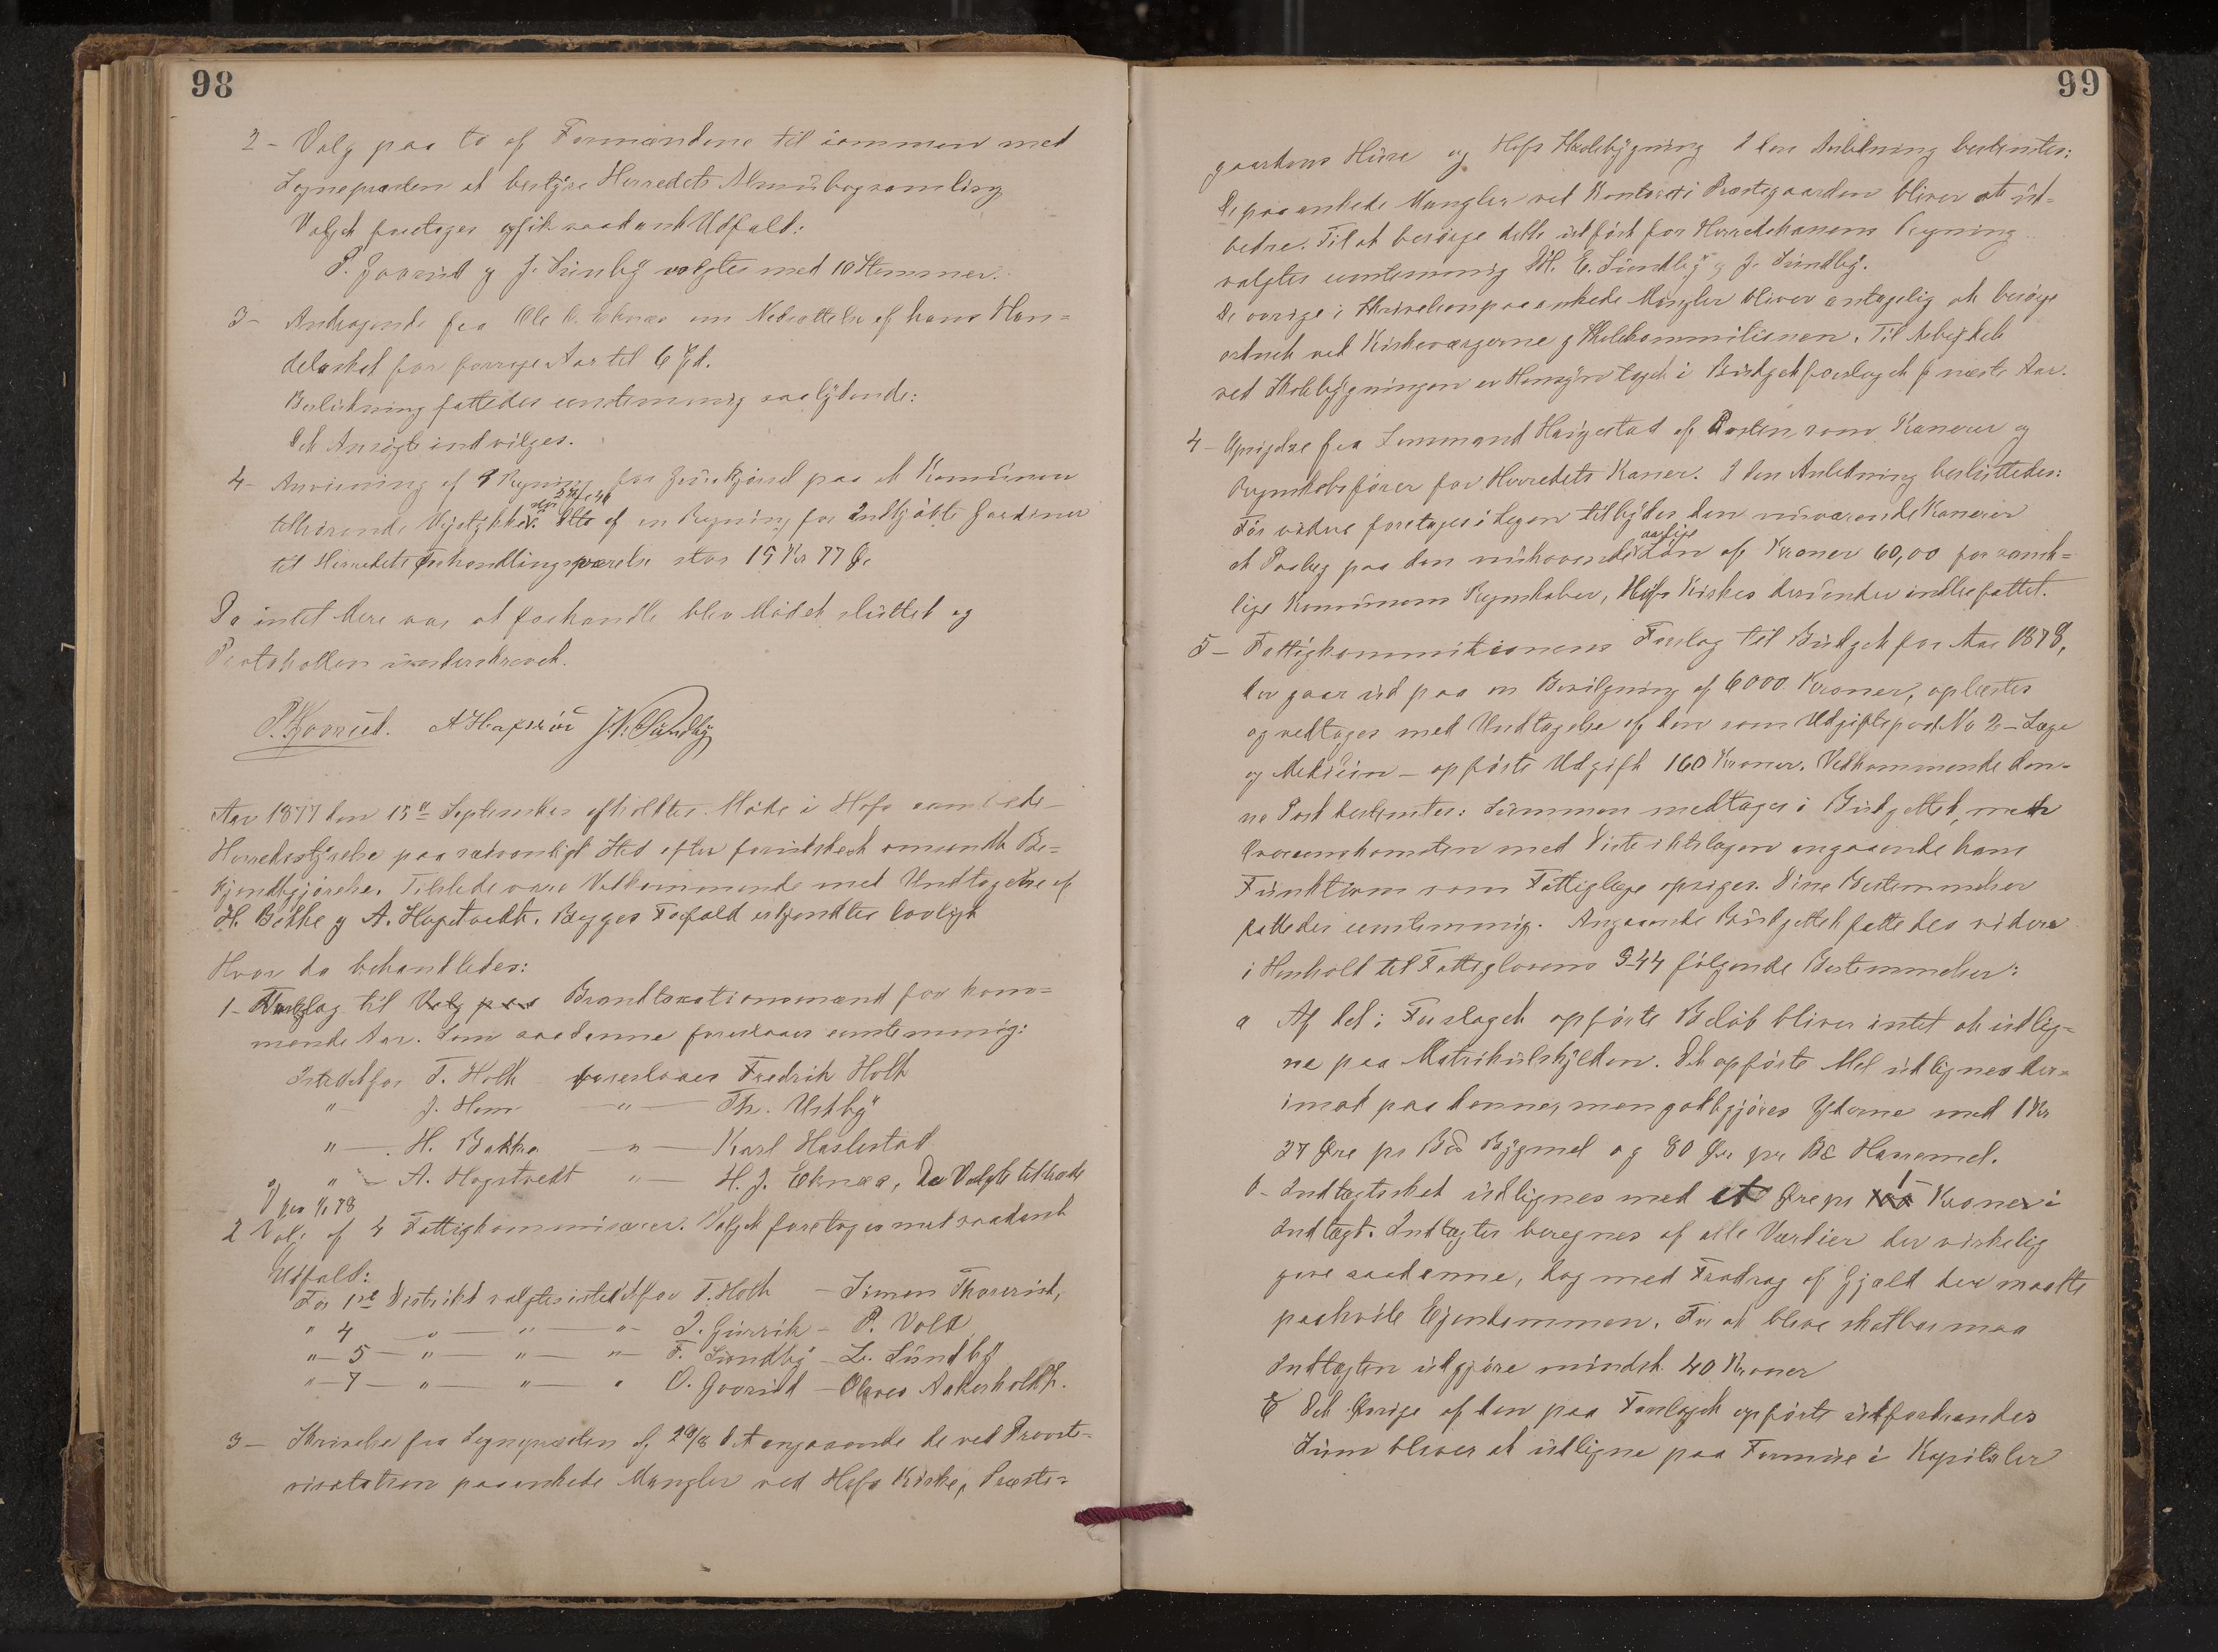 98
2 - Valg paa to af Formændene til sammen med
Sognepræsten at bestyre Herredets Almuebogsamling
Valget foretoges og fik saadant Udfald:
P. Gaarud og J. Sundby valgtes med 10 Stemmer.
3 - Andragende fra Ole O. Eknæs om Nedsættelse af hans Han=
delsskat for forrige Aar til 6 Spd.
Beslutning fattedes eenstemmig saalydende:
Det Ansøgte indvilges.
4 - Anvisning af Regning for paa et Komunen
tilhørende Ditto af en Regning for Indkjøbte Gardiner
til Herredets Forhandlingsværelse stor 15 Kr 77 Øre
Da intet Mere var at forhandle blev Mødet sluttet og
Protokollen underskrevet.
P. Gaarud. J. N. Sundby
Aar 1877 den 15de September afholdtes Møde i Hofs samlede
Herredsstyrelse paa sædvanligt Sted efter forudskeet omsendt Be=
kjendtgjørelse. Tilstede vare Vedkommende med Undtagelse af
H. Bakke og A. Hogstvedt. Begges Forfald erkjendtes lovligt
Hvor da behandledes:
1 - Forslag til Valg paa Brandtaxationsmænd for kom=
mende Aar. Som saadanne foreslaaes eenstemmig:
Istedetfor T. Holt foreslaaes Fredrik Holt
" J. Hem — " — Th. Ustby
" — H. Bakke — " — Karl Haslestad
og " — A. Hogstvedt " — H. J. Eknæs, De Valgte tiltræde
fra 1/1 78
2 Valg af 4 Fattigkommissærer. Valget foretoges med saadant
Udfald:
For 1ste Distrikt valgtes istedetfor T. Holt — Simen Thorerud,
" 4 — " — " — " — I. Gurrik — P. Vold
" — 5 — " — " — " — F. Sundby — L. Sundby
" — 7 — " — " — " O. Gaarud — Olaves Aakerholdt.
3 — Skrivelse fra Sognepræsten af 29/8 d. A angaaende de ved Provste=
visitatsen paaankede Mangler ved Hofs Kirke, Præste=
99
gaardens Huse og Hofs Skolebygning I den Anledning bestemtes:
De paaankede Mangler ved Kontoret i Præstegaarden bliver at ud=
bedre. Til at besørge dette udført for Herredskassens Regning
valgtes eenstemmig E. Sundby og J. Sundby.
De øvrige i Skrivelsen paaankede Mangler bliver antagelig at besørge
ordnet ved Kirkeværgerne og Skolekommissionen. Til Arbeidet
ved Skolebygningen er Hensyn taget i Budgetforslaget for næste Aar.
4 - Opsigelse fra Lensmand Haugestad af Posten som Kaserer og
Regnskabsfører for Herredets Kasser. I den Anledning besluttedes:
Før videre foretages i Sagen tilbydes den nuværende Kaserer
et Paalæg paa den nuhavende aarlige Løn af Kroner 60,00 for samt=
lige Komunens Regnskaber, Hofs Kirkes derunder indbefattet.
5 - Fattigkommissionens Forslag til Budget for Aar 1878,
der gaar ud paa en Bevilgning af 6000 Kroner, oplæstes
og vedtages med Undtagelse af den som Udgiftspost No 2 - Læge
og Medicin - opførte Udgift 160 Kroner. Vedkommende den=
ne Post bestemtes: Summen medtages i Budgettet, men
Overenskomsten med Distriktslægen angaaende hans
Funktion som Fattiglæge opsiges. Disse Bestemmelser
fattedes eenstemmig. Angaaende Budgettet fattedes videre
i Henhold til Fattiglovens § 44 følgende Bestemmelser:
a Af det i Forslaget opførte Beløb bliver intet at udlig=
ne paa Matrikulskylden. Det opførte Mel udlignes der=
imod paa denne, men godtgjøres Yderne med 1 Kr
27 Øre pr Bygmel og 80 Øre pr Havremel.
b - Indtægtsskat udlignes med et Øre pr 1 Krone i
Indtægt. Indtægter beregnes af alle Værdier der virkelig
give saadanne, dog med Fradrag af Gjæld der maatte
paahvile Ejendommen. For at blive skatbar maa
Indtægten udgjøre mindst 40 Kroner
C Det Øvrige af den paa Forslaget opførte udfordrendes
Sum bliver at udligne paa Formue i Kapitaler